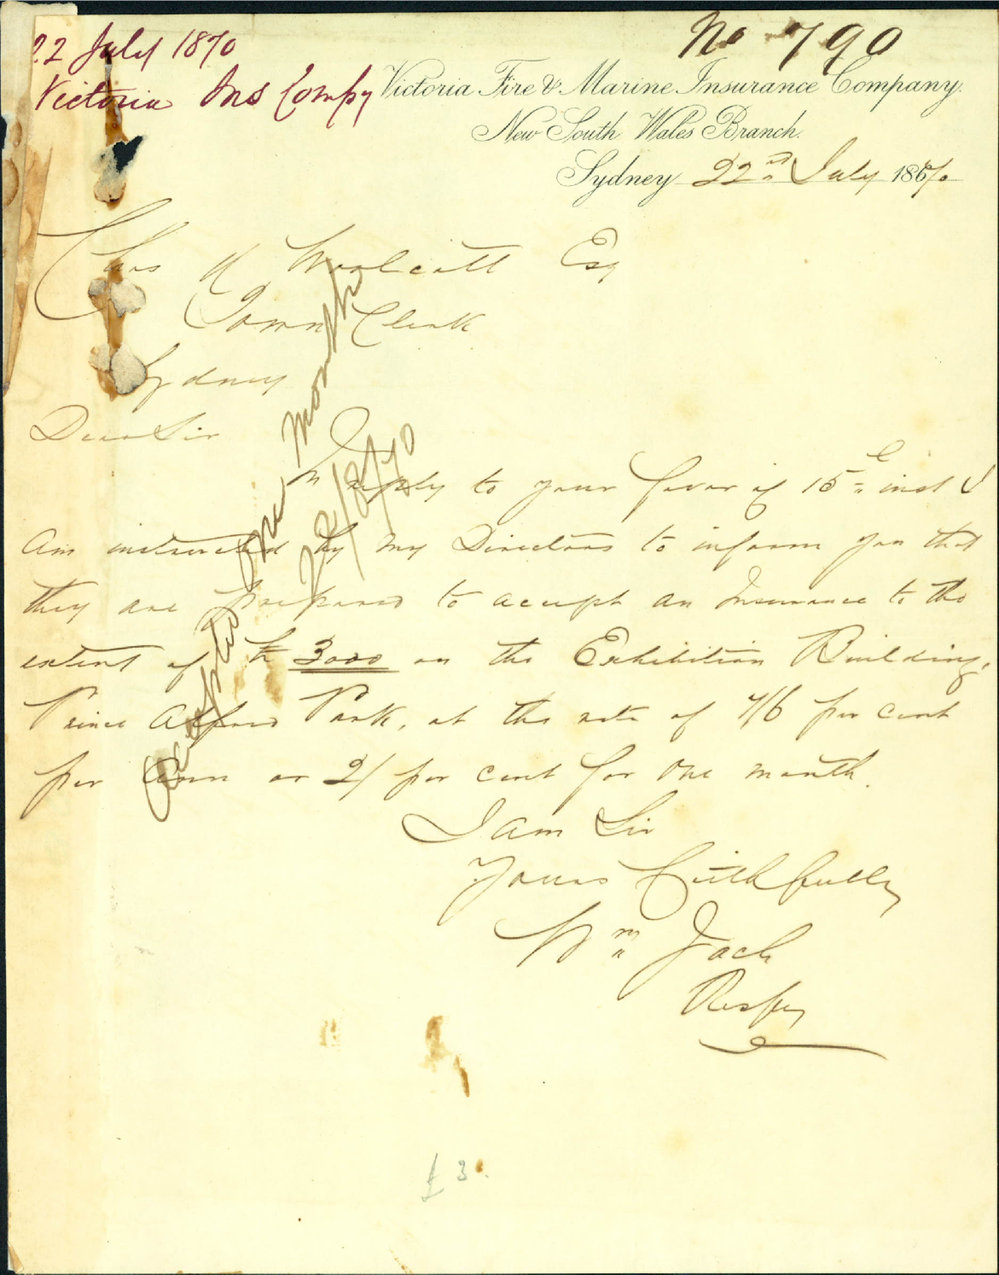 22 July 1870
Victoria Ins Compy
No 790
Victoria Fire & Marine Insurance Company.
New South Wales Branch.
Sydney 22nd July 1870
Chas H Woolcott Esq
Town Clerk
Sydney
Dear Sir
In reply to your favor of 15th inst I
am instructed by my Directors to inform you that
they are prepared to accept an Insurance to the
extent of £ 3000 on the Exhibition Building,
Prince Alfred Park, at the rate of 7/6 per cent
per Ann or 2/ per cent for one month.
I am Sir
Yours Faithfully
Wm Jack
Accepted one month
22/8/70
£3